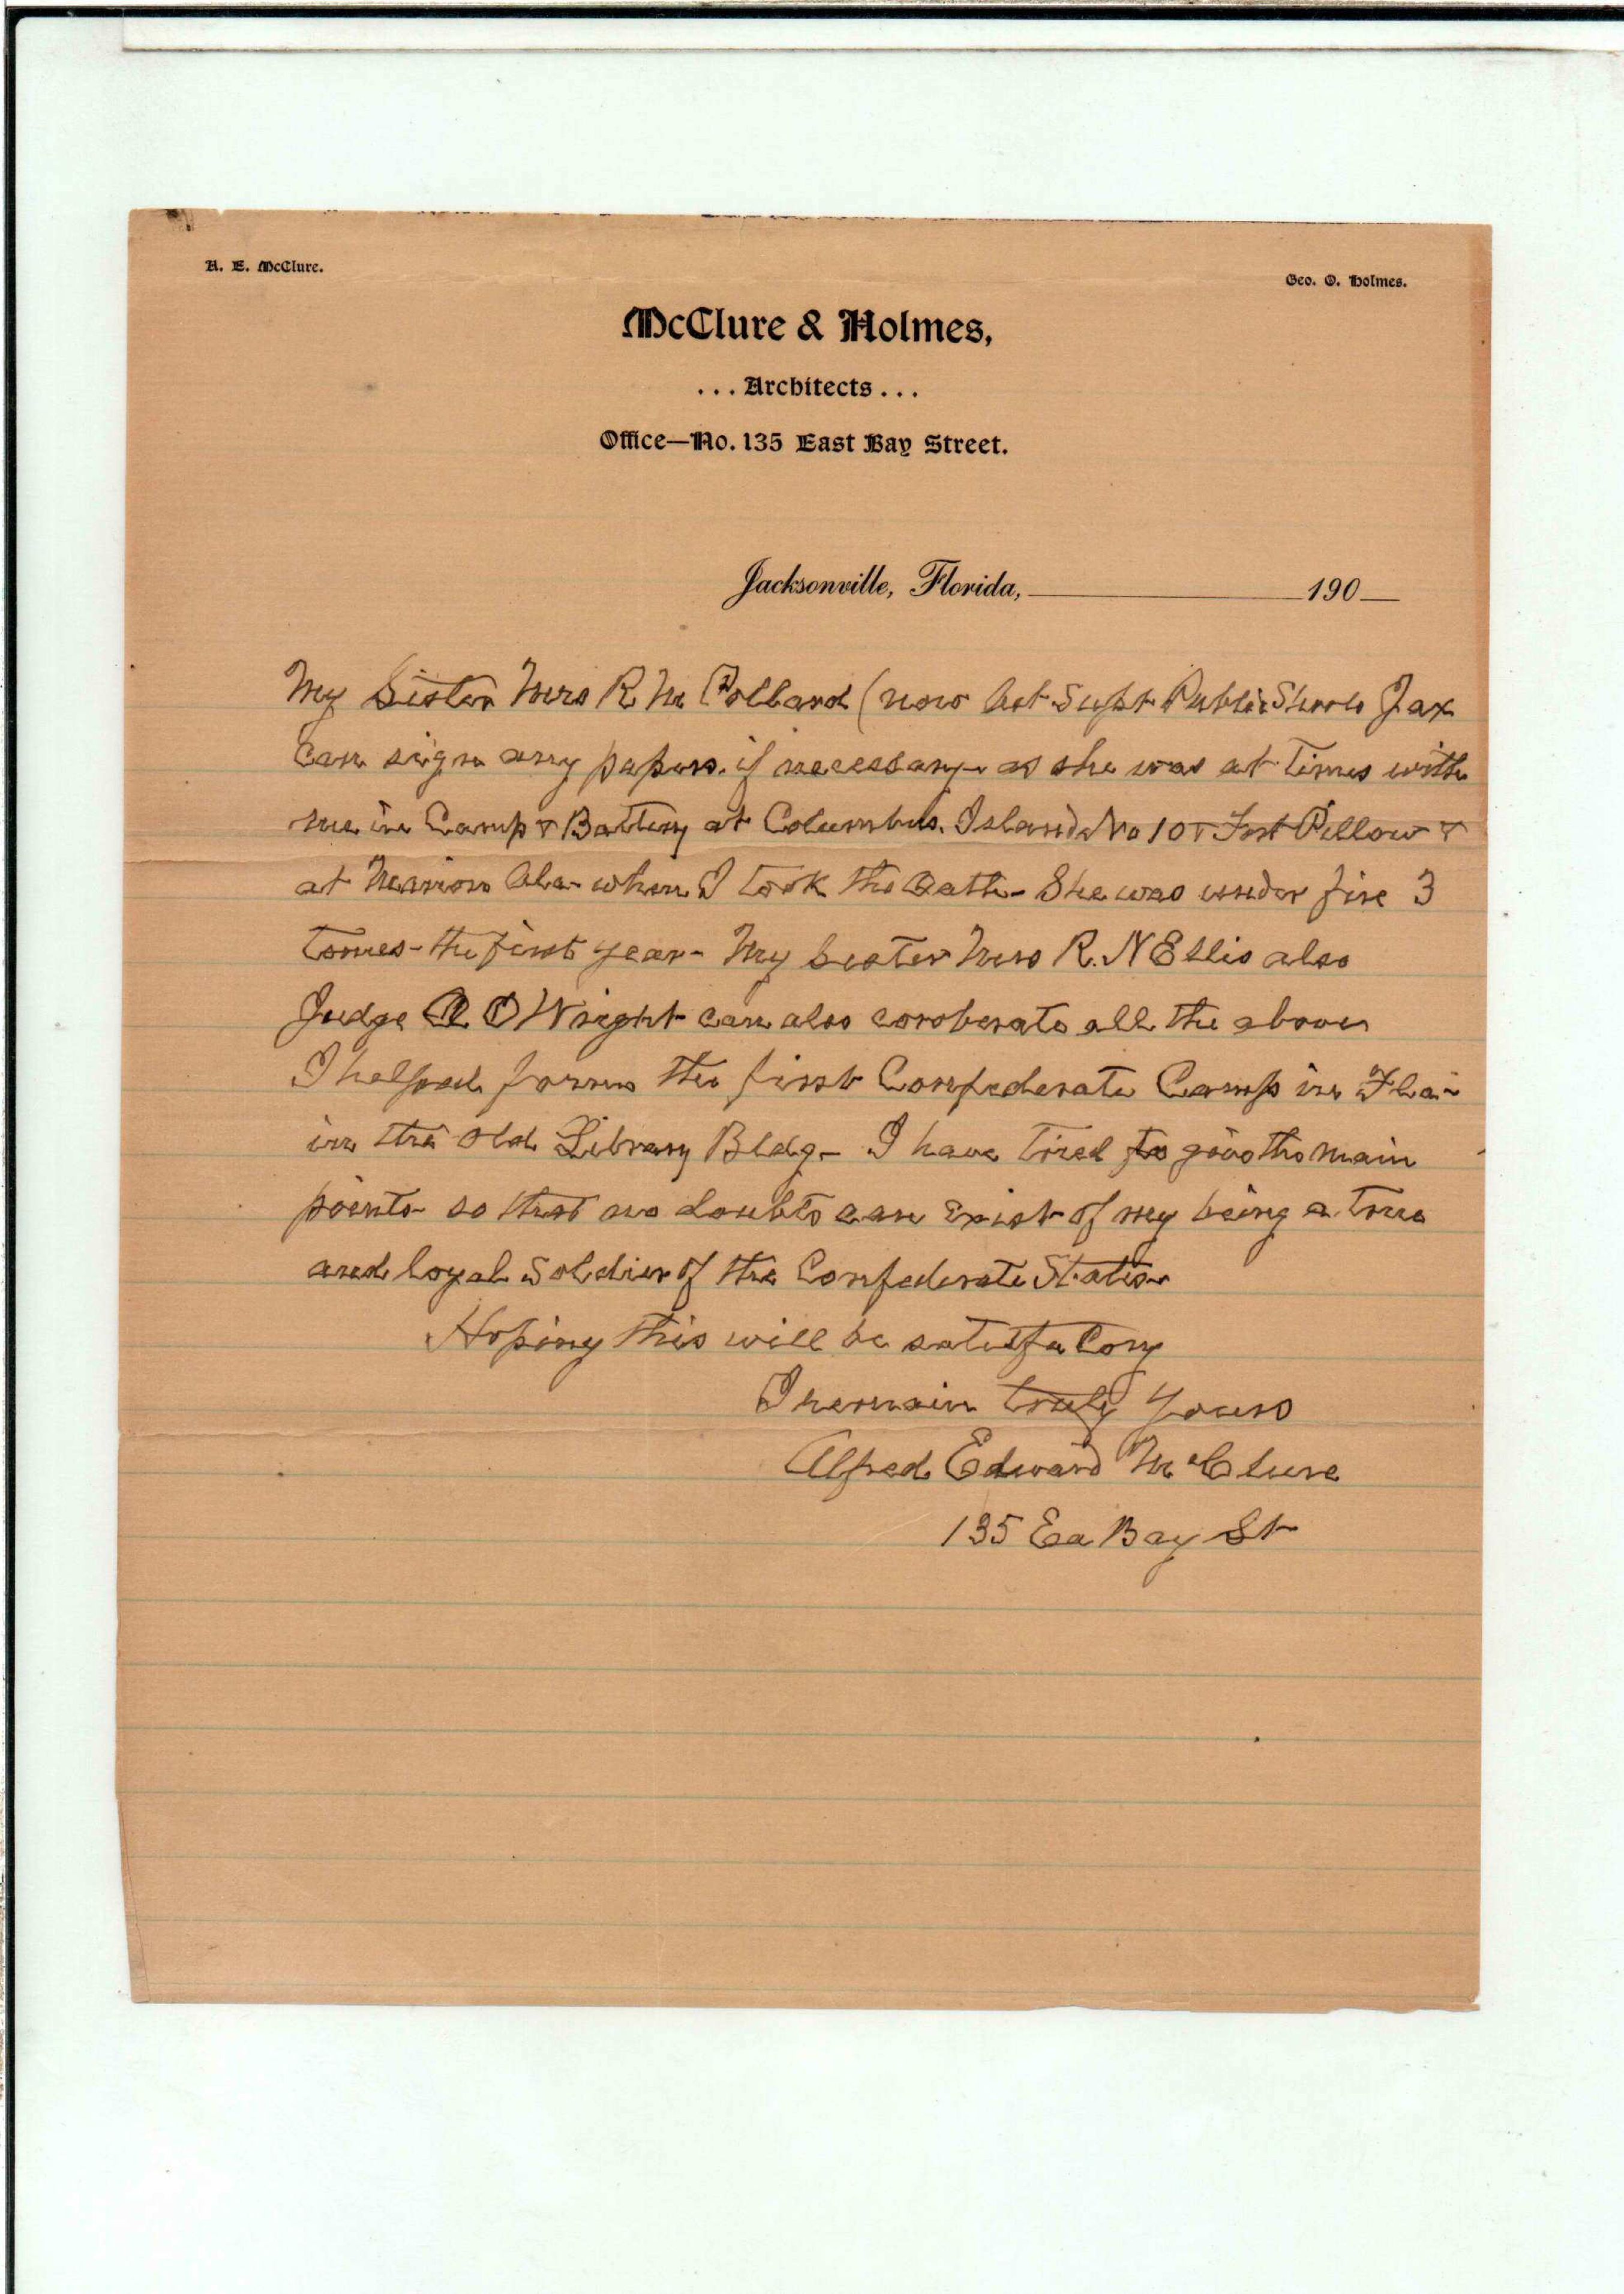 A. E. McClure.
Geo. O. Holmes.
McClure & Holmes,
... Architects ...
Office—No. 135 East Bay Street.
Jacksonville, Florida, 190
My Sister Mrs R M Pollard (now Supt Public Jax
Can sign any papers. if necessary - as she was at Times with
me in Camp & Battery at Columbus. Island No 10 & Fort Pillow &
at Marion Ala - when I Took the Oath - She was under fire 3
Times - the first year - My Sister Mrs R. N Ellis also
Judge O Wright can also coroberate all the above
I helped form the first Confederate Camp in Fla -
in the Old Library Bldg - I have Tried to give the main
points so that no doubts can exist of my being a True
and loyal Soldier of the Confederate States
Hoping This will be
I remain Truly Yours
Alfred Edward McClure
135 Ea Bay St